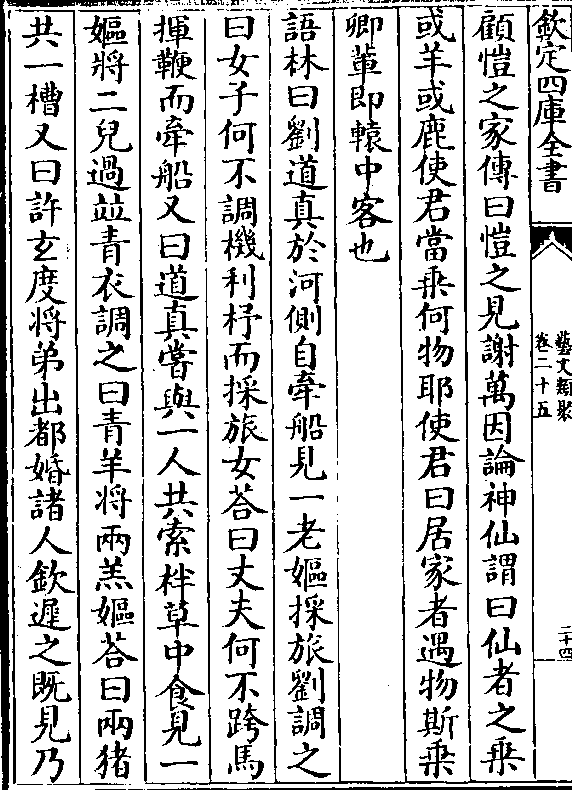 欽定四庫全書
藝文類聚
卷二十五
二十四
顧愷之家傳曰愷之見謝萬因論神仙謂曰仙者之乗
或羊或鹿使君當乗何物耶使君曰居家者遇物斯乗
卿軰即轅中客也
語林曰劉道真於河側自牽船見一老嫗採旅劉調之
曰女子何不調機利杼而採旅女荅曰丈夫何不跨馬
揮鞭而牽船又曰道真嘗與一人共索柈草中食見一
嫗將二兒過並青衣調之曰青羊將兩羔嫗荅曰兩猪
共一槽又曰許玄度將弟出都婚諸人欽遲之既見乃